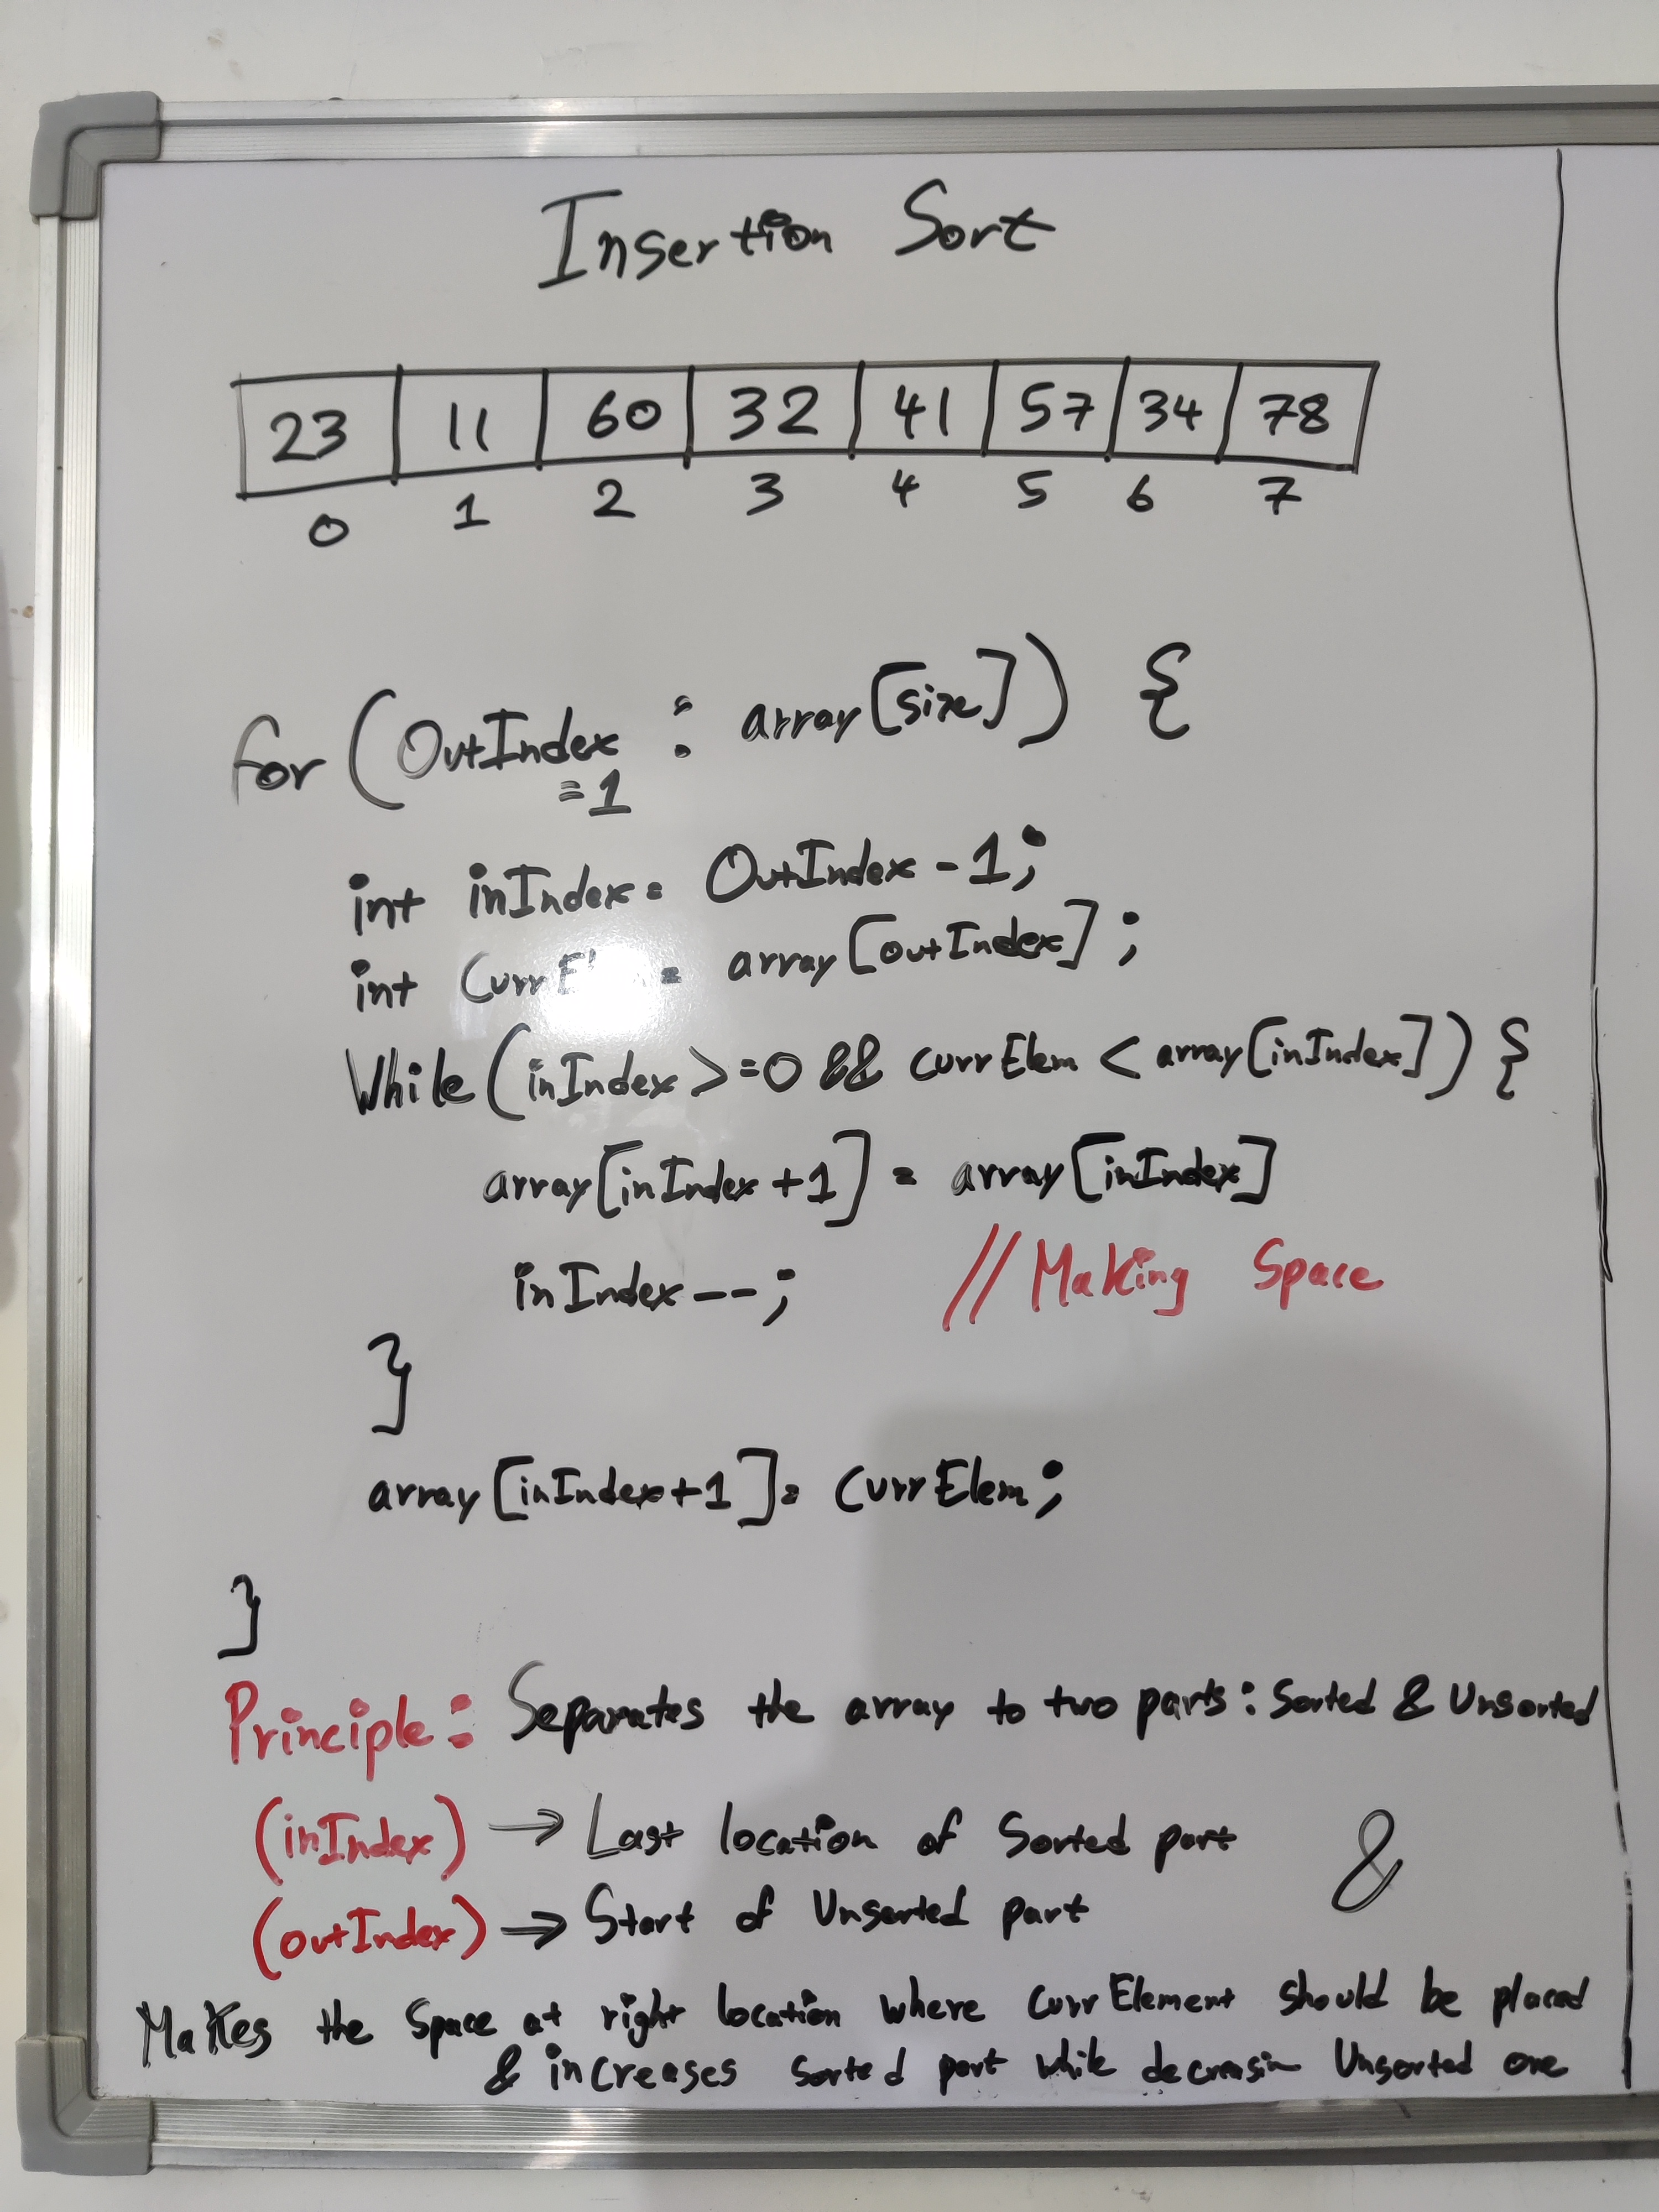 Insertion Sort
23 11 60 32 41 57 34 78
0 1 2 3 4 5 6 7
for (OutIndex : array[size]) {
=1
int inIndex = OutIndex - 1;
int = array[outIndex];
While (inIndex >= 0 && currElem < array[inIndex]) {
array[inIndex + 1] = array[inIndex]
inIndex --; // Making Space
}
array[inIndex + 1] = CurrElem;
}
Principle : Separates the array to two parts : Sorted & Unsorted
(inIndex) → Last location of Sorted part &
(outIndex) → Start of Unsorted part
Makes the Space at right location where CurrElement should be placed
& increases sorted part while Unsorted one